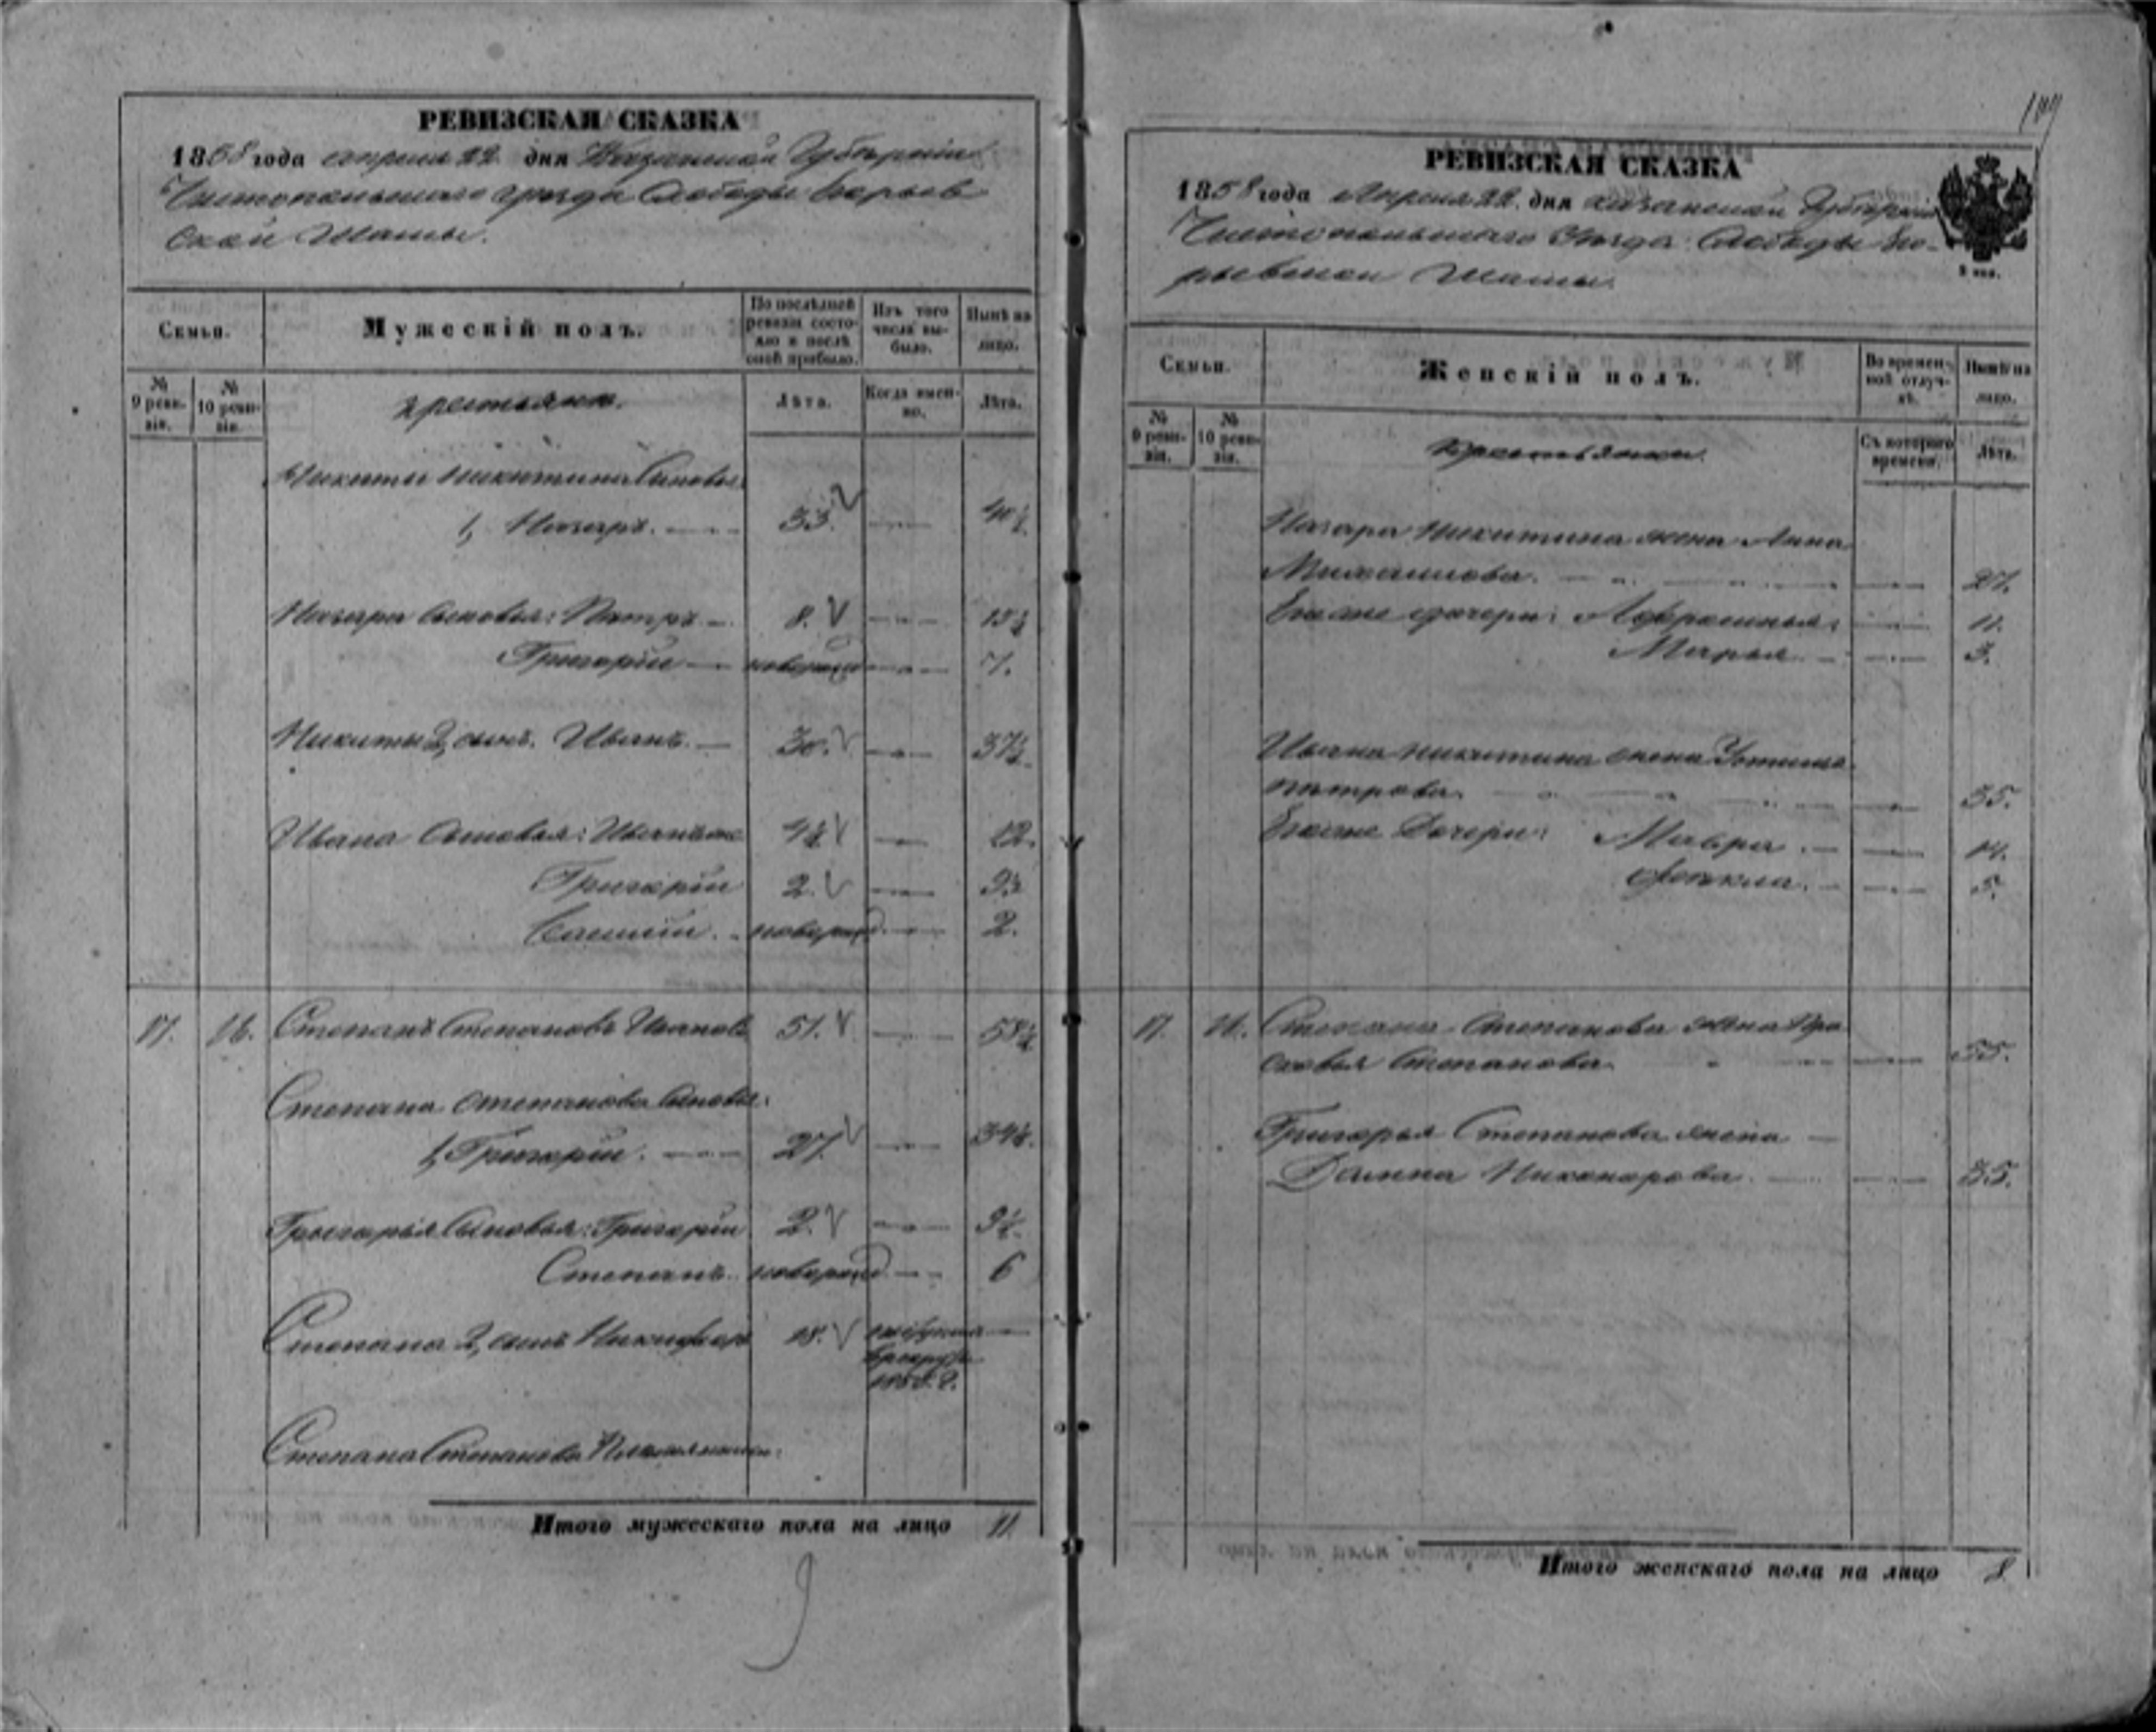 РЕВИЗСКАЯ СКАЗКА
1858 года апреля 22 дня Казанской Губернiи
Чистопольскаго уезда Слободы Екарьев
ской Шамы.
Семьи.
Мужескiй полъ.
По послѣдней ревизiи состояло и послѣ оной прибыло.
Изъ того числа выбыло.
Нынѣ на лицо.
№ 9 ревизiи.
№ 10 ревизiи.
крестьяне.
Лѣта.
Когда именно.
Лѣта.
Никиты Никитина Сыновья
1, Назаръ. 33. 40½
Назара Сыновья: Петръ 8. 15½
Григорiй новорожд 7.
Никиты 2, сынъ. Иванъ. 30. 37½
Ивана Сыновья: 4½ 12.
Григорiй 2. 9½
новорожд 2.
17. 16. Степанъ Степановъ Ивановъ 51. 58½
Степана Степанова Сыновья:
1, Григорiй. 27. 34½
Григорья Сыновья: Григорiй 2. 9½
Степанъ. новорожд 6
Степана 2, сынъ Никифоръ 18.
Степана Степанова Племянники:
Итого мужескаго пола на лицо 11
9
РЕВИЗСКАЯ СКАЗКА
1858 года Апреля 22 дня Казанской Губернiи
Чистопольскаго Уезда Слободы
Шамы.
Семьи.
Женскiй полъ.
Во временной отлучкѣ.
Нынѣ на лицо.
№ 9 ревизiи.
№ 10 ревизiи.
Крестьянки.
Съ котораго времени.
Лѣта.
Назара Никитина жена Анна
Михайлова. 27.
Егоже дочери: 11.
Марья 3.
Ивана Никитина жена Устинья
Петрова. 35.
Егоже Дочери: Мавра 14.
Фекла. 5.
17. 16. Степана Степанова жена Пра
сковья Степанова. 55.
Григорья Степанова жена
Домна Никонорова 35.
Итого женскаго пола на лицо 8